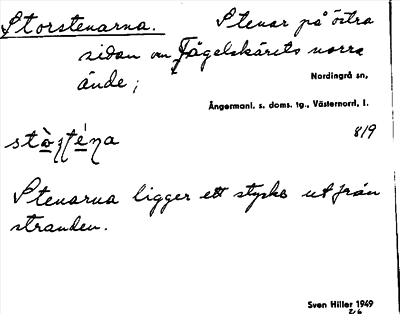 Storstenarna. Stenar på östra
sidan om Fågelskärets norra
ände;
Nordingrå sn,
Ångermanl. s. doms. tg., Västernorrl. l.
8/9
Stenarna ligger ett stycke ut från
stranden.
Sven Hiller 1949